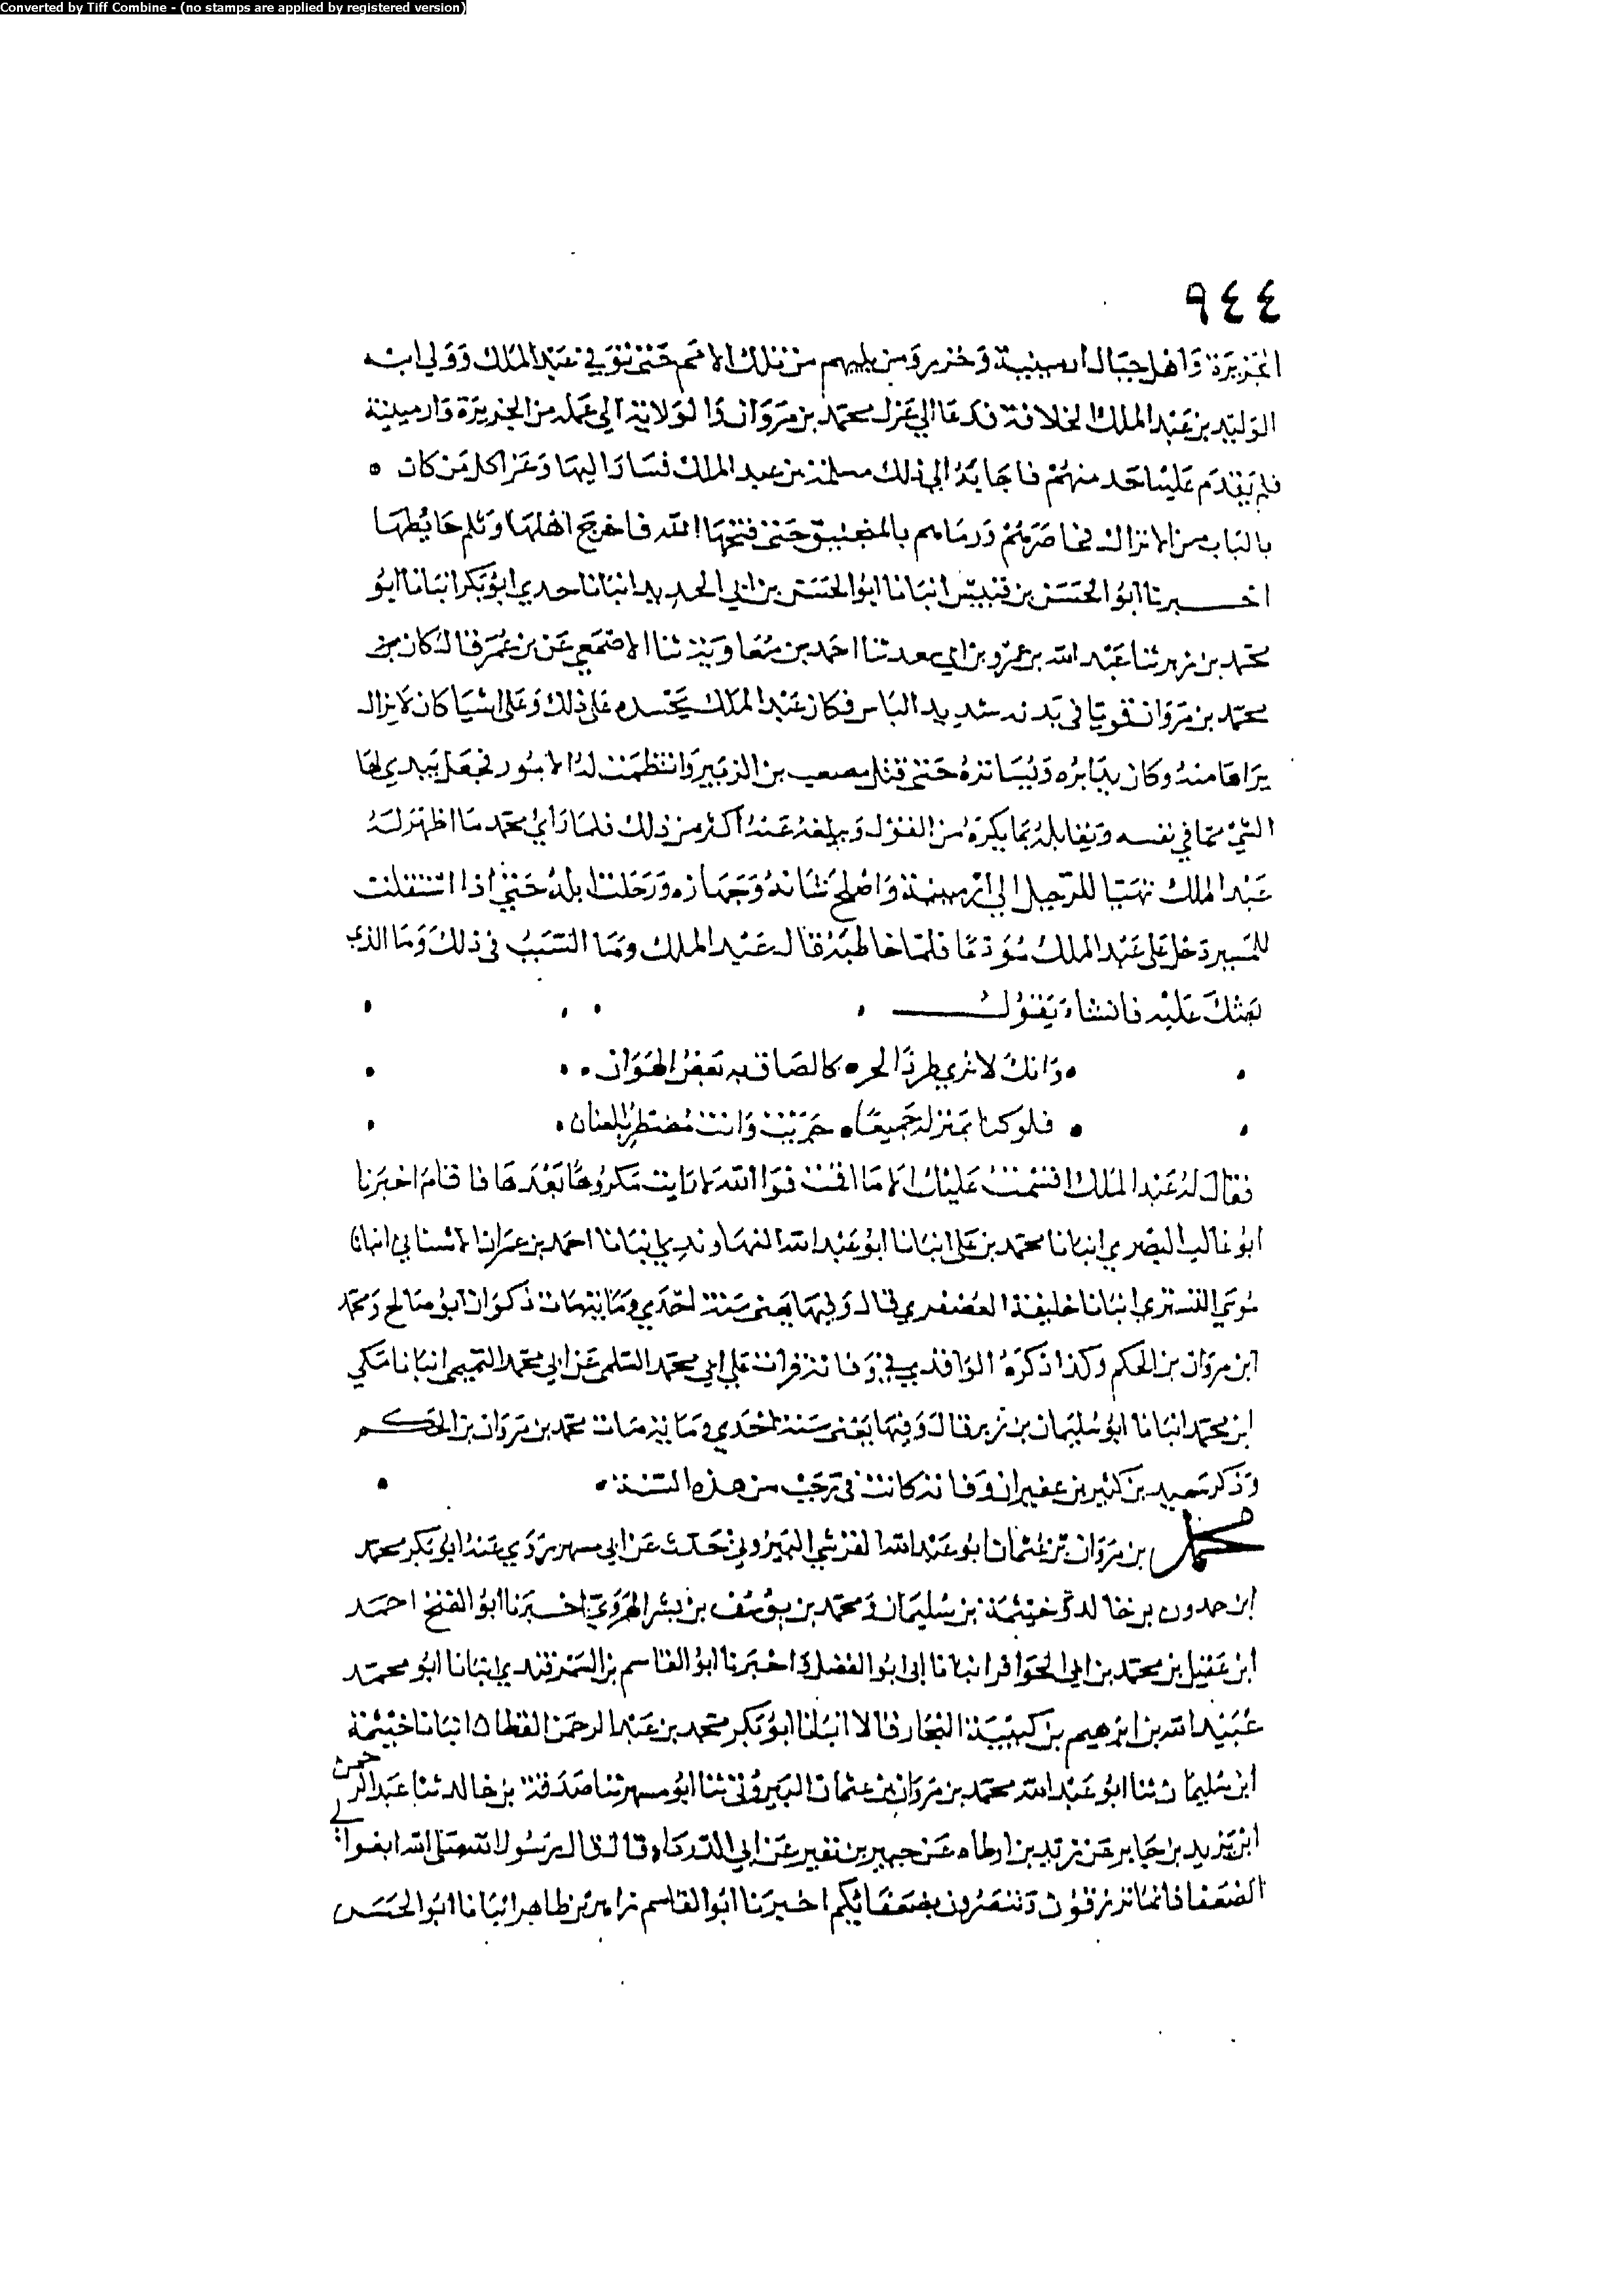 Converted by Tiff Combine - (no stamps are applied by registered version)
٩٤٤
الجزيرة واهل جبال ارمينية وخزر ومن يليهم من تلك الامم حتى توفي عبد الملك وولي ابنه
الوليد بن عبد الملك الخلافة فدعا الي عزل محمد بن مروان ذا لولايته الي عمله من الجزيرة وارمينية
فلم يقدم علينا احد منهم فاجابه الي ذلك مسلمة بن عبد الملك فسار اليها وغزا كل من كان
بالباب من الاتراك فحاصرهم ورماهم بالمنجنيق حتى فتحها الله فاخرج اهلها وثلم حايطها
اخبرنا ابو الحسن بن قبيس انبانا ابو الحسن بن ابي الحديد انبانا جدي ابو بكر انبانا ابو
محمد بن زبر ثنا عبد الله بن عمرو بن ابي سعد ثنا احمد بن معاوية ثنا الاصمعي عن بن عمر قال كان بن
محمد بن مروان قويا في بدنه شديد الباس فكان عبد الملك يحسده على ذلك وعلى اشيا كان لا يزال
يراها منه وكان يدابره ويساتره حتى قتل مصعب بن الزبير وانتظمت له الامور فجعل يبدي لها
الشيء مما في نفسه ويقابله بما يكره من القول ويبلغه عنه اكثر من ذلك فلما راي محمد ما اظهر له
عبد الملك تهيا للرحيل الي ارمينية واصلح شانه وجهازه ورحلت ابله حتى اذا استقلت
للمسير دخل على عبد الملك مودعا فلما خاطبه قال عبد الملك وما السبب في ذلك وما الذي
بعثك عليه فانشاء يقول
وانك لا تري طردا لحر كالصاق به بعض الهوان
فلو كنا بمنزلة جميعا جريت وانت مضطرب العنان
فقال له عبد الملك اقسمت عليك الا ما اقمت فوالله لا رايت مكروها بعدها فاقام اخبرنا
ابو غالب البصري انبانا محمد بن علي انبانا ابو عبد الله النهاوندي انبانا احمد بن عمران الاشناني انبانا
موسي التستري انبانا خليفة العصفري قال وفيها يعني سنة احدي وماية مات ذكوان ابو صالح ومحمد
ابن مروان بن الحكم وكذا ذكره الواقدي في وفاته قرات علي ابي محمد السلمي عن ابي محمد التميمي انبانا مكي
ابن محمد انبانا ابو سليمان بن زبر قال وفيها يعني سنة احدي وماية مات محمد بن مروان بن الحكم
وذكر سعيد بن كثير بن عفير ان وفاته كانت في رجب من هذه السنة
محمد بن مروان بن عثمان ابو عبد الله القرشي البيروتي حدث عن ابي مسهر روي عنه ابو بكر محمد
ابن حمدون بن خالد وخيثمة بن سليمان ومحمد بن يوسف بن بشر الهروي اخبرنا ابو الفتح احمد
ابن عقيل بن محمد بن ابي الحوافر انبانا ابي ابو الفضل واخبرنا ابو القاسم بن السمرقندي انبانا ابو محمد
عبيد الله بن ابرهيم بن كبيبة النجار قالا انبانا ابو بكر محمد بن عبد الرحمن القطان انبانا خيثمة
ابن سليمان ثنا ابو عبد الله محمد بن مروان بن عثمان البيروتي ثنا ابو مسهر ثنا صدقة بن خالد ثنا عبد الرحمن
ابن يزيد بن جابر عن زيد بن ارطاه عن جبير بن نفير عن ابي الدرداء قال قال رسول الله صلى الله ابغوا لي
الضعفا فانما ترزقون وتنصرون بضعفائكم اخبرنا ابو القاسم زاهر بن طاهر انبانا ابو الحسن